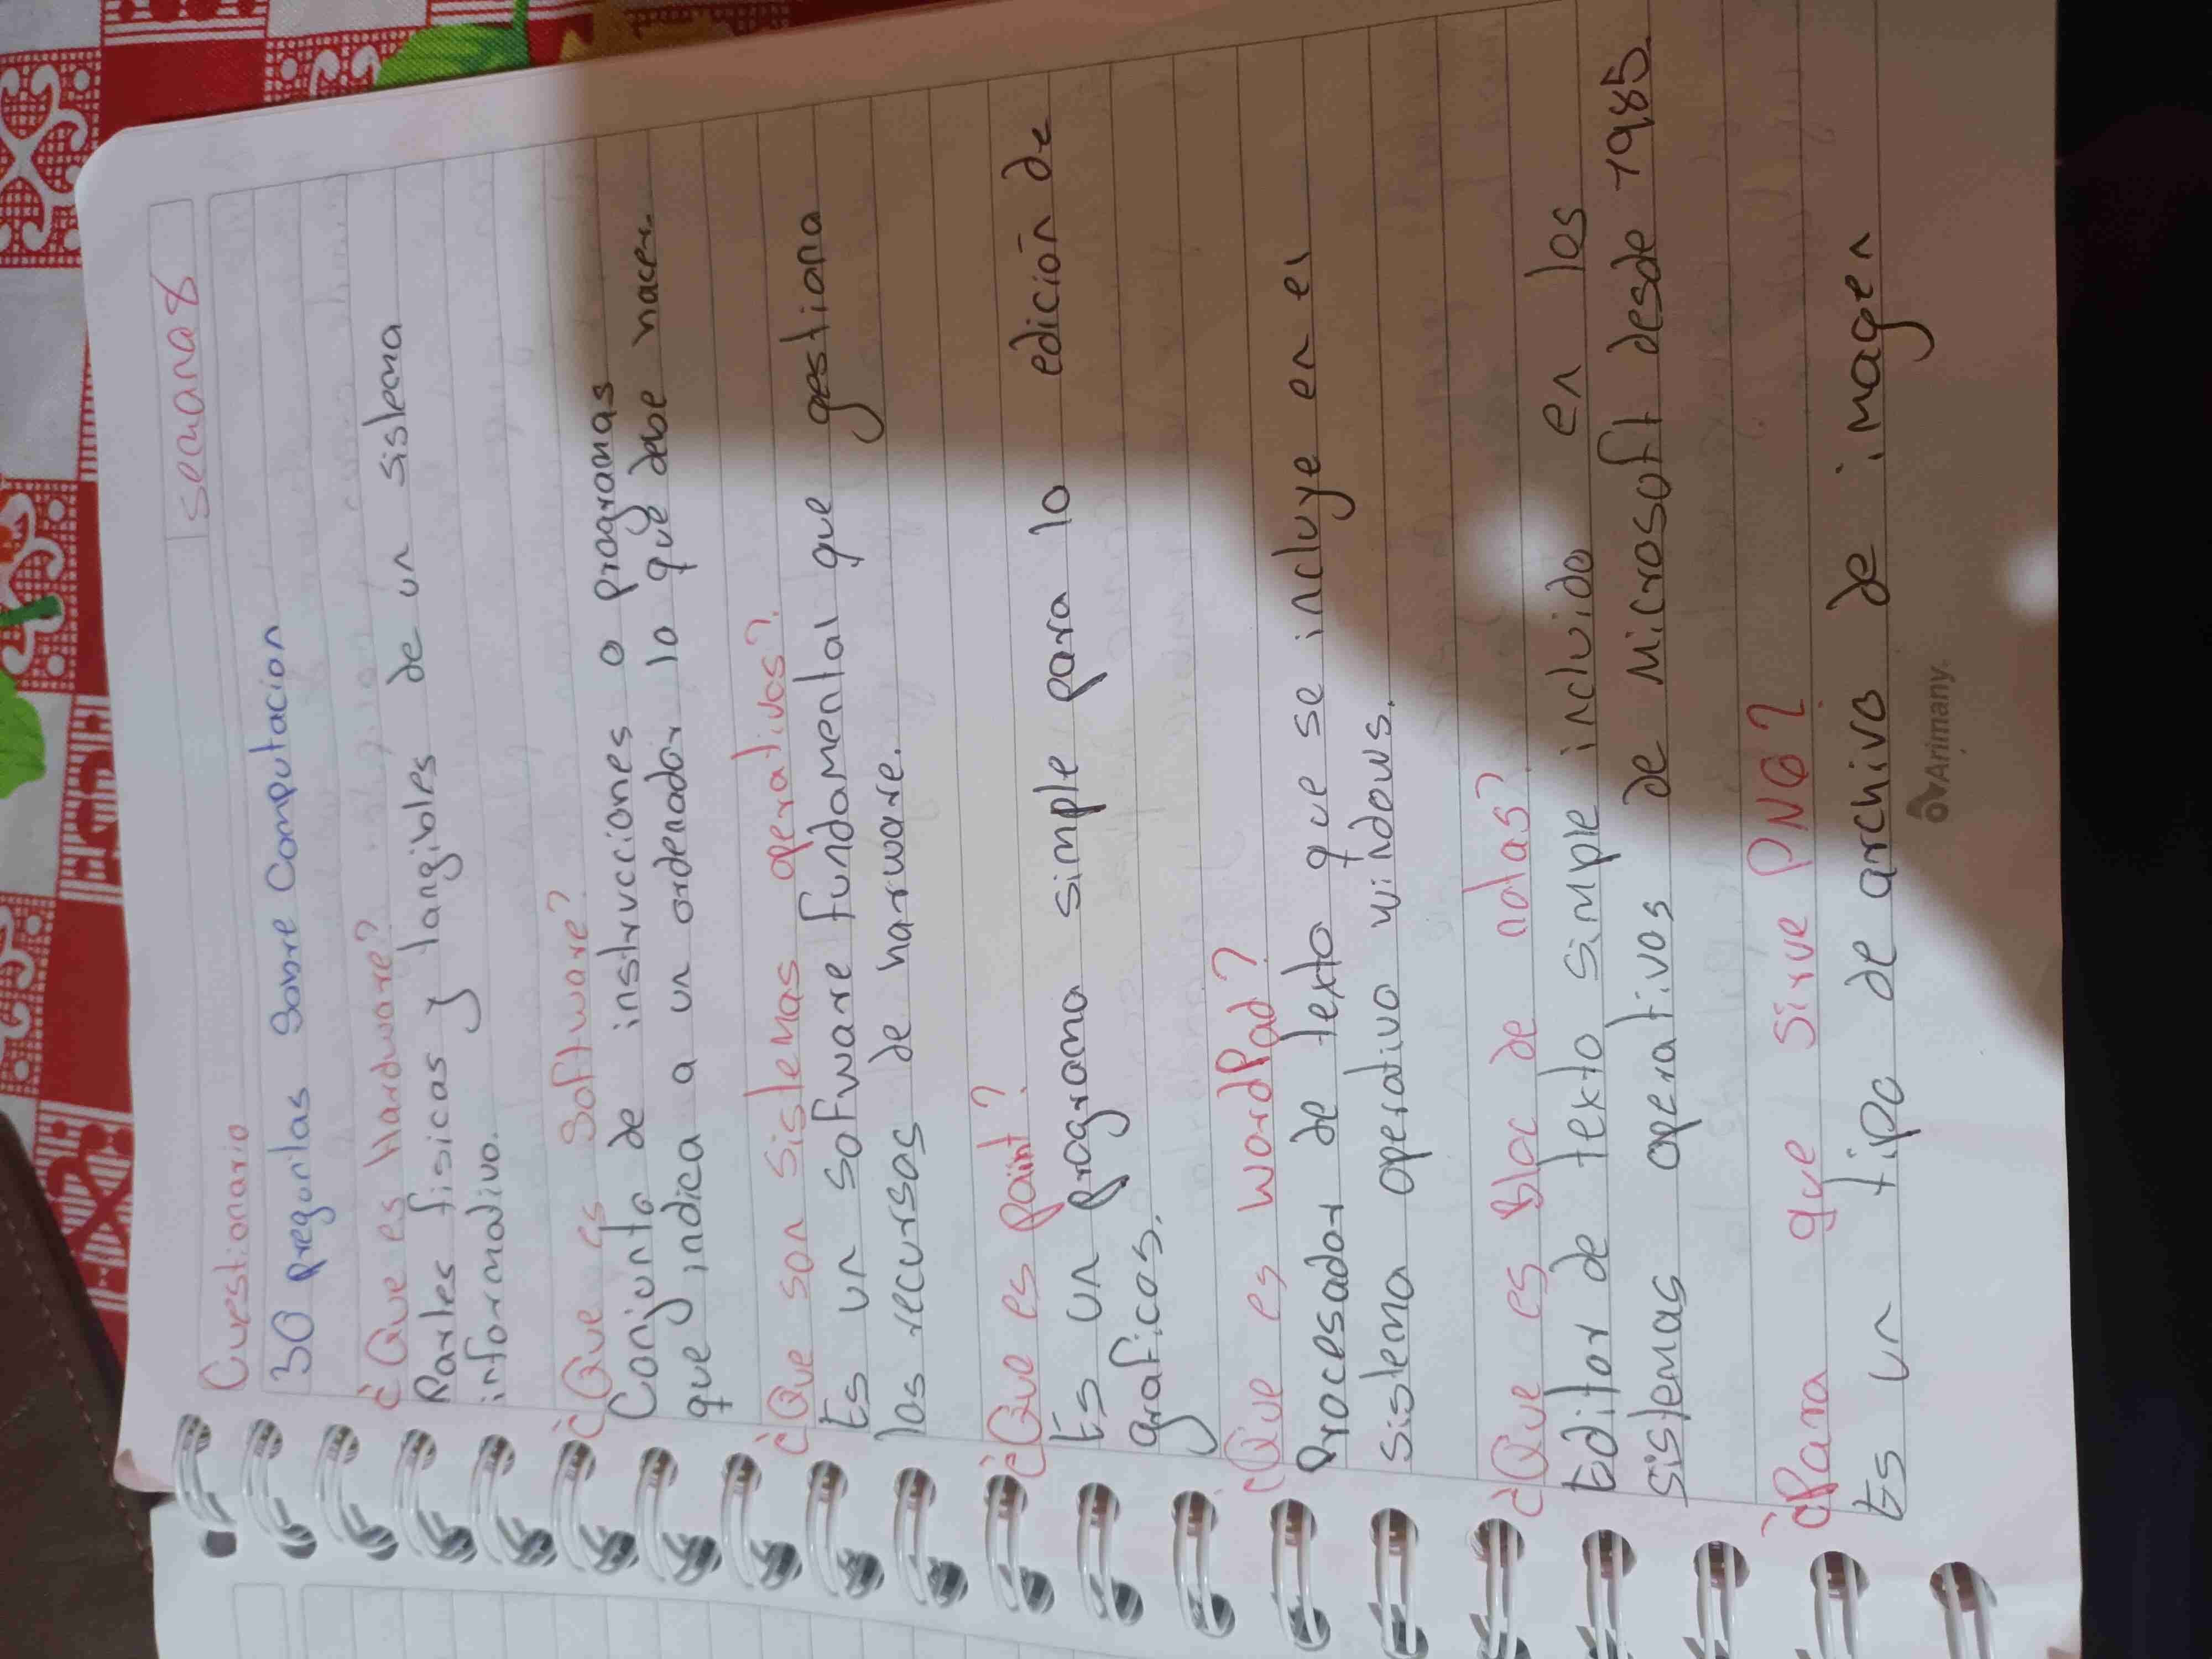 semana 8
Cuestionario
30 preguntas sobre Computacion
¿Que es Hardware?
Partes fisicas y tangibles de un sistema
informativo.
¿Que es Software?
Conjunto de instrucciones o programas
que indica a un ordenador lo que debe hacer.
¿Que son sistemas operativos?
Es un sofware fundamental que gestiona
los recursos de harware.
¿Que es paint?
Es un programa simple para la edición de
graficos.
¿Que es wordPad?
Procesador de texto que se incluye en el
sistema operativo windows.
¿Que es Bloc de notas?
Editor de texto simple incluido en los
sistemas operativos de microsoft desde 1985.
¿Para que sirve PNG?
Es un tipo de archivo de imagen
Arimany